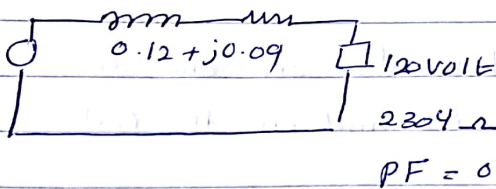 0.12 + j0.09
120 volt
2304 Ω
PF = 0